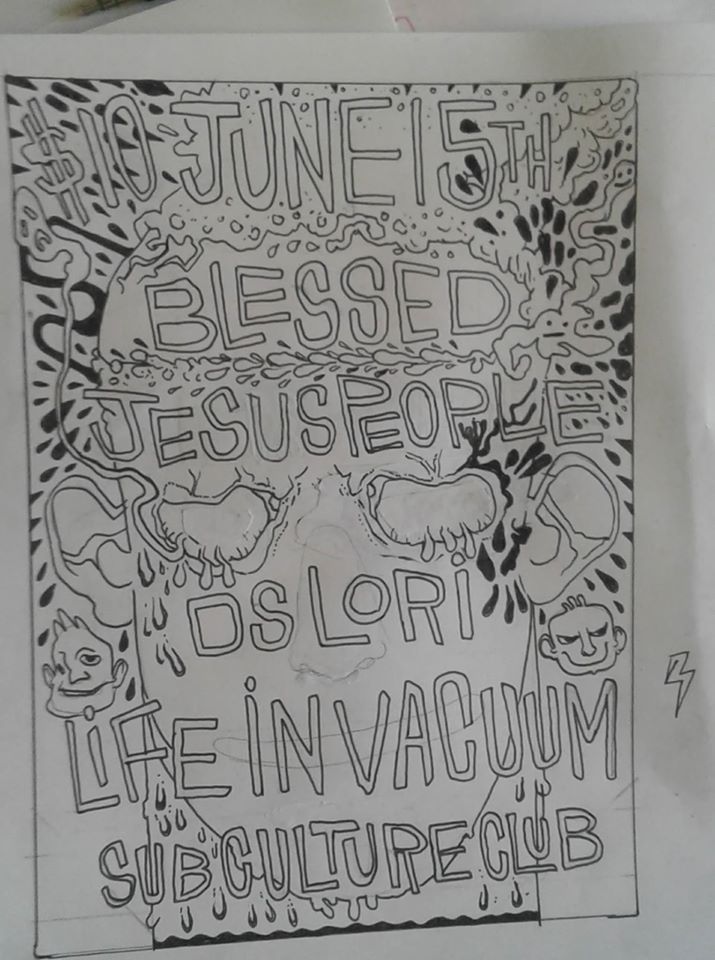 $10 JUNE 15TH
BLESSED
JESUS PEOPLE
OS LORI
LiFE iN VACUUM
SUBCULTURE CLUB